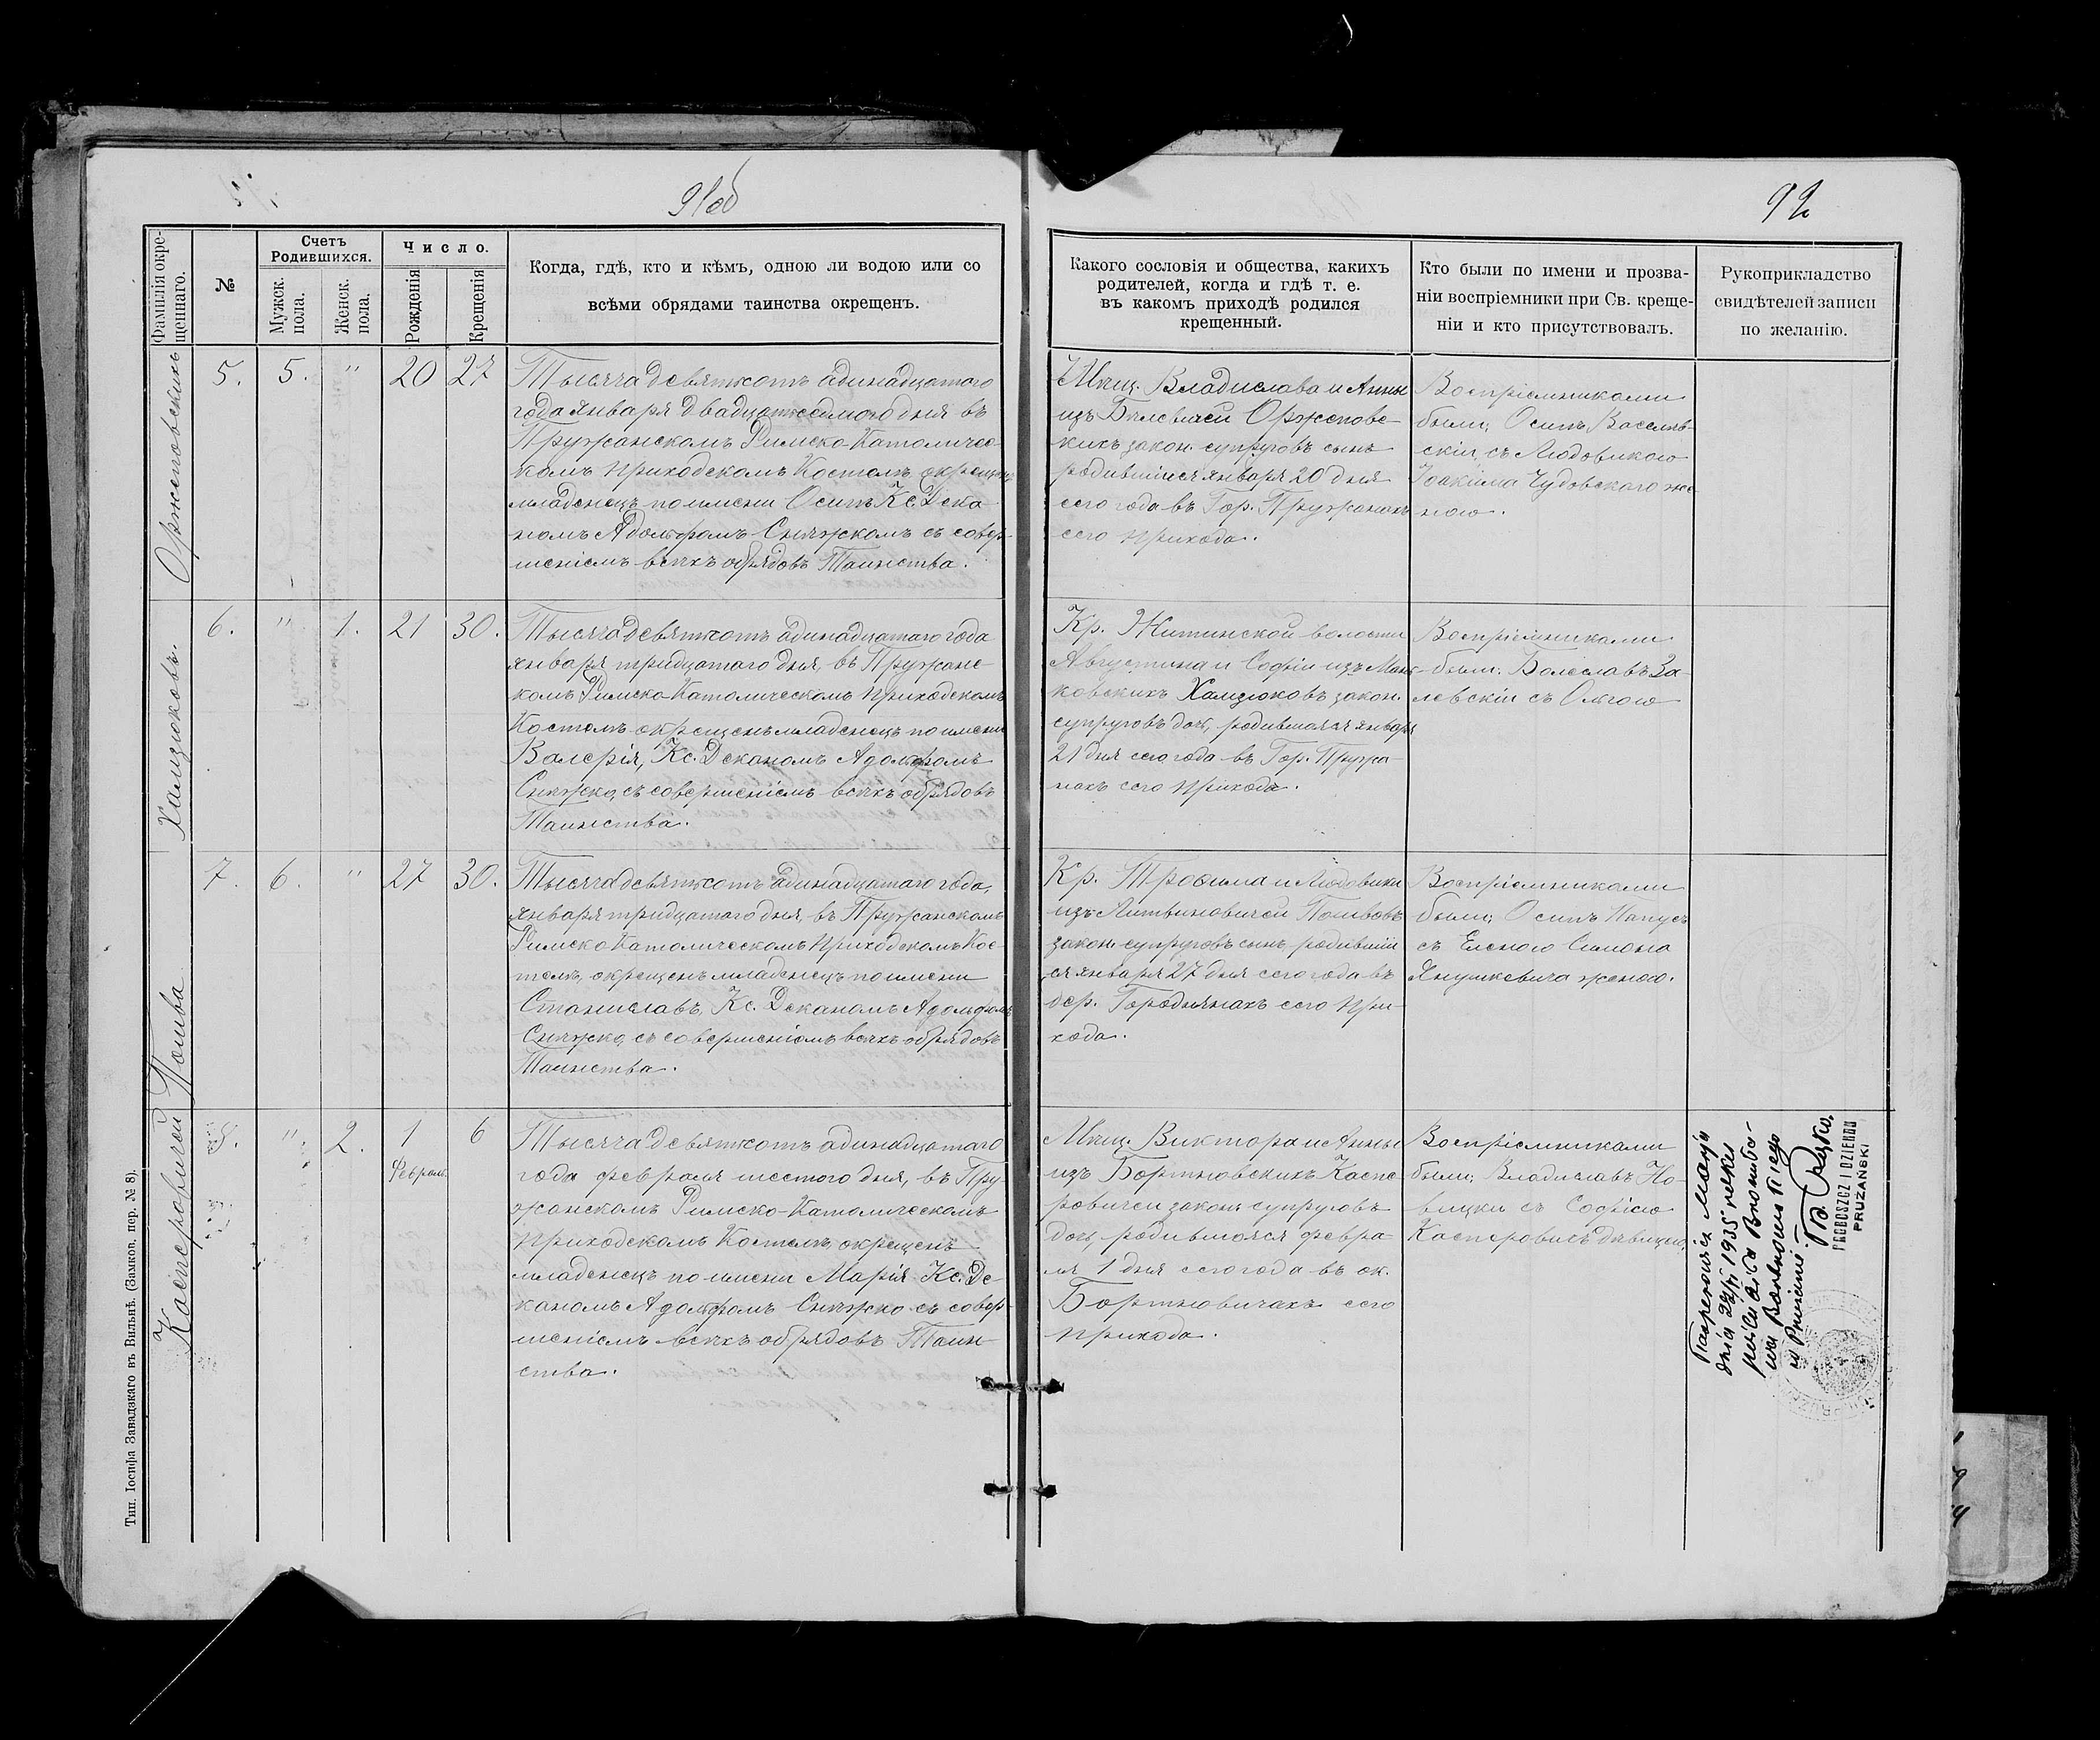 91об
92
Фамилія окре-
щеннаго.
№
Счетъ
Родившихся.
Мужск.
пола.
Женск.
пола.
Число.
Рожденія
Крещенія
Когда, гдѣ, кто и кѣмъ, одною ли водою или со
всѣми обрядами таинства окрещенъ.
Какого сословія и общества, какихъ
родителей, когда и гдѣ т. е.
въ какомъ приходѣ родился
крещенный.
Кто были по имени и прозва-
ніи воспріемники при Св. креще-
ніи и кто присутствовалъ.
Рукоприкладство
свидѣтелей записи
по желанію.
Оржеповскихъ
5. 5. " 20 27
Тысяча девятьсотъ адинадцатого
года января двадцатьседмого дня въ
Пружанскомъ Римско-Католичес-
комъ приходскомъ Костелѣ, окрещенъ
младенецъ по имени Осипъ Кс. Дека-
номъ Адольфомъ Снѣжкомъ съ совер-
шеніемъ всѣхъ обрядовъ Таинства.
Мѣщ. Владислава и Анны
изъ Оржепов-
кихъ закон. супруговъ сынъ
родившійся января 20 дня
сего года въ Гор. Пружанахъ
сего прихода.
Воспріемниками
были, Осипъ Василев-
скій, съ Людовикою
Іоакима Чудовскаго же-
ною.
Хамзюковъ.
6. " 1. 21 30.
Тысяча девятьсотъ адинадцатаго года
января тридцатаго дня, въ Пружанс-
комъ Римско-Католическомъ приходскомъ
Костелѣ окрещенъ младенецъ по имени
Валерія, Кс. Деканомъ Адольфомъ
Снѣжко, съ совершеніемъ всѣхъ обрядовъ
Таинства.
Кр. Житинской волости
Августина и Софіи изъ
ковскихъ Хамзюковъ закон.
супруговъ дочь, родившаяся января
21 дня сего года въ Гор. Пружа-
нахъ сего прихода.
Воспріемниками
были, Болеславъ За-
левскій съ Ольгою
Пошва
7. 6. " 27 30.
Тысяча девятьсотъ адинадцатаго года,
января тридцатого дня, въ Пружанскомъ
Римско Католическомъ приходскомъ Кос-
телѣ, окрещенъ младенецъ по имени
Станиславъ, Кс. Деканомъ Адольфомъ
Снѣжко, съ совершеніемъ всѣхъ обрядовъ
Таинства.
Кр. Трофима и Людовики
изъ Литвиновичей Пошвовъ
закон. супруговъ сынъ, родившій
ся января 27 дня сего года въ
дер. Городнянахъ сего при-
хода.
Воспріемниками
были; Осипъ Папусь
съ Еленою Симона
Янушкевича женою.
Касперовичей
". 2. 1 6
Февраль
Тысяча девятьсотъ адинадцатого
года февраля шестого дня, въ Пру-
жанскомъ Римско-Католическомъ
приходскомъ Костелѣ окрещенъ
младенецъ по имени Марія Кс. Де-
каномъ Адольфомъ Снѣжко съ совер-
шеніемъ всѣхъ обрядовъ Таин-
ства.
Мѣщ. Виктора и Анны
изъ Бортновскихъ Каспе-
ровичей закон. супруговъ
дочь, родившаяся февра-
ля 1 дня сего года въ ок.
Бортновичахъ сего
прихода.
Воспріемниками
были; Владиславъ Но-
вицки съ Софіею
Касперовичъ дѣвицею.
Kasperowicz Marja
dnia 1935 roku
w Prużanie
PROBOSZCZ I DZIEKAN
PRUŻAŃSKI
Тип. Іосифа Завадзкаго въ Вильнѣ. (Замков. пер. № 8).